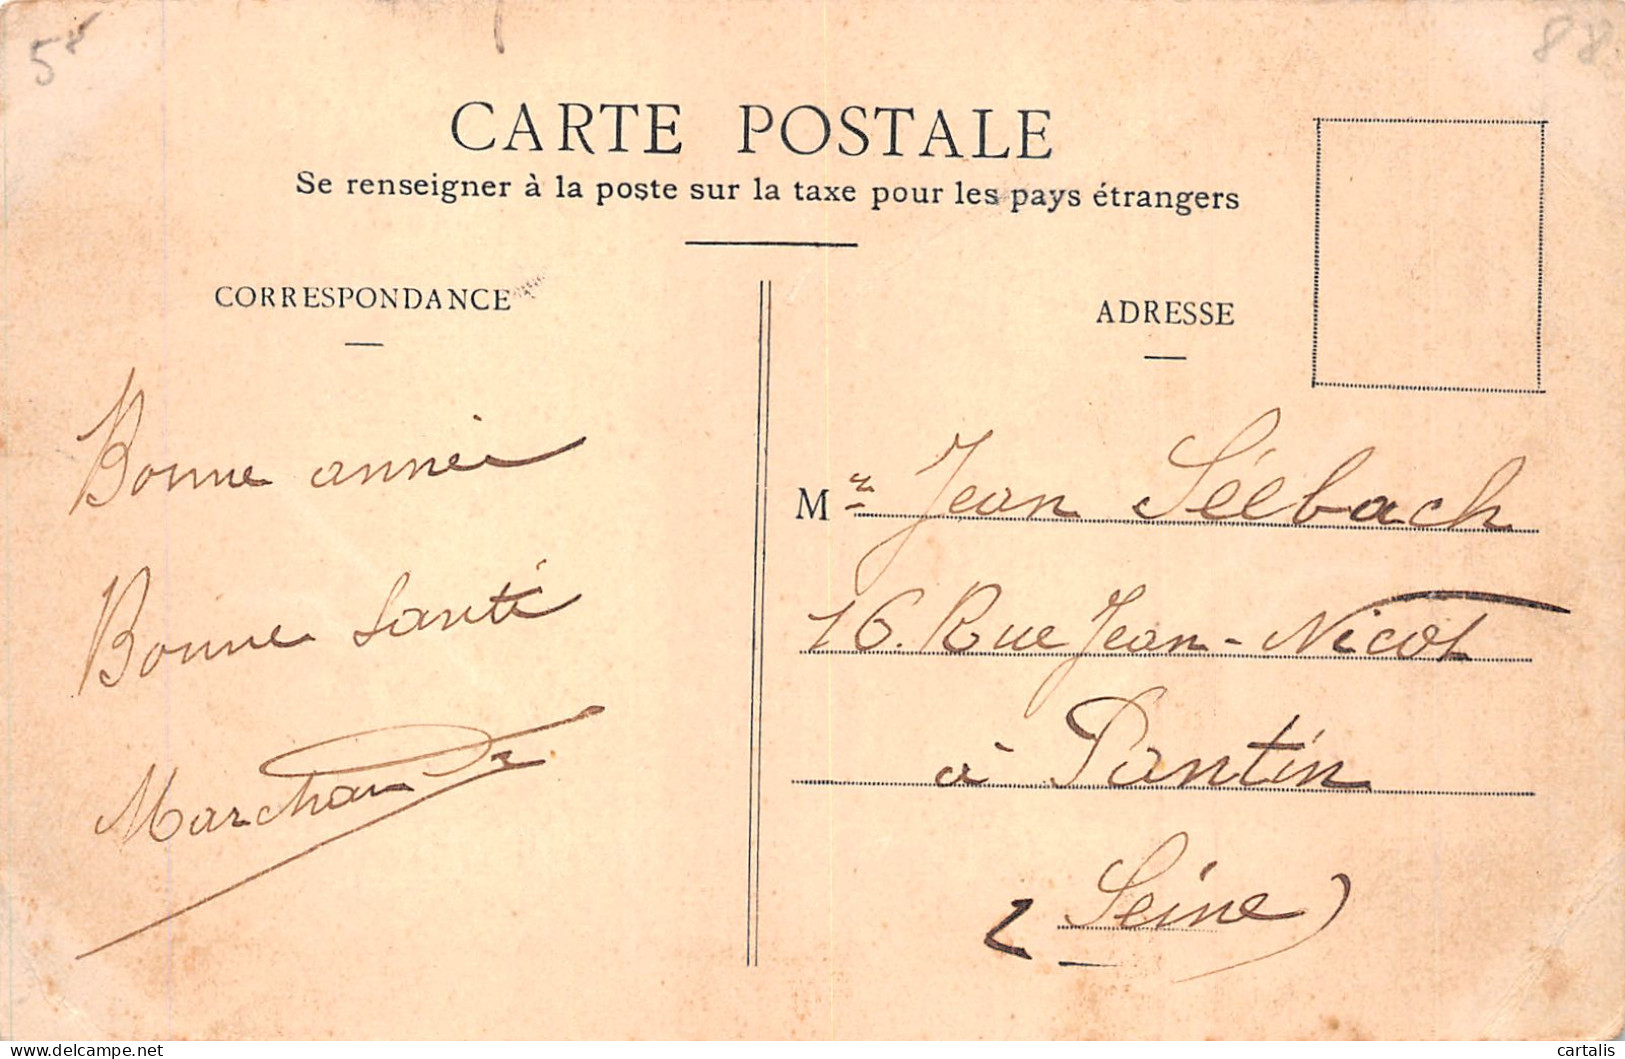 58
88
CARTE POSTALE
Se renseigner à la poste sur la taxe pour les pays étrangers
CORRESPONDANCE
ADRESSE
Bonne année
Bonne Santé
Marchand
Mr Jean Séebach
16. Rue Jean-Nicot
à Pantin
(Seine)
delcampe.net
cartalis